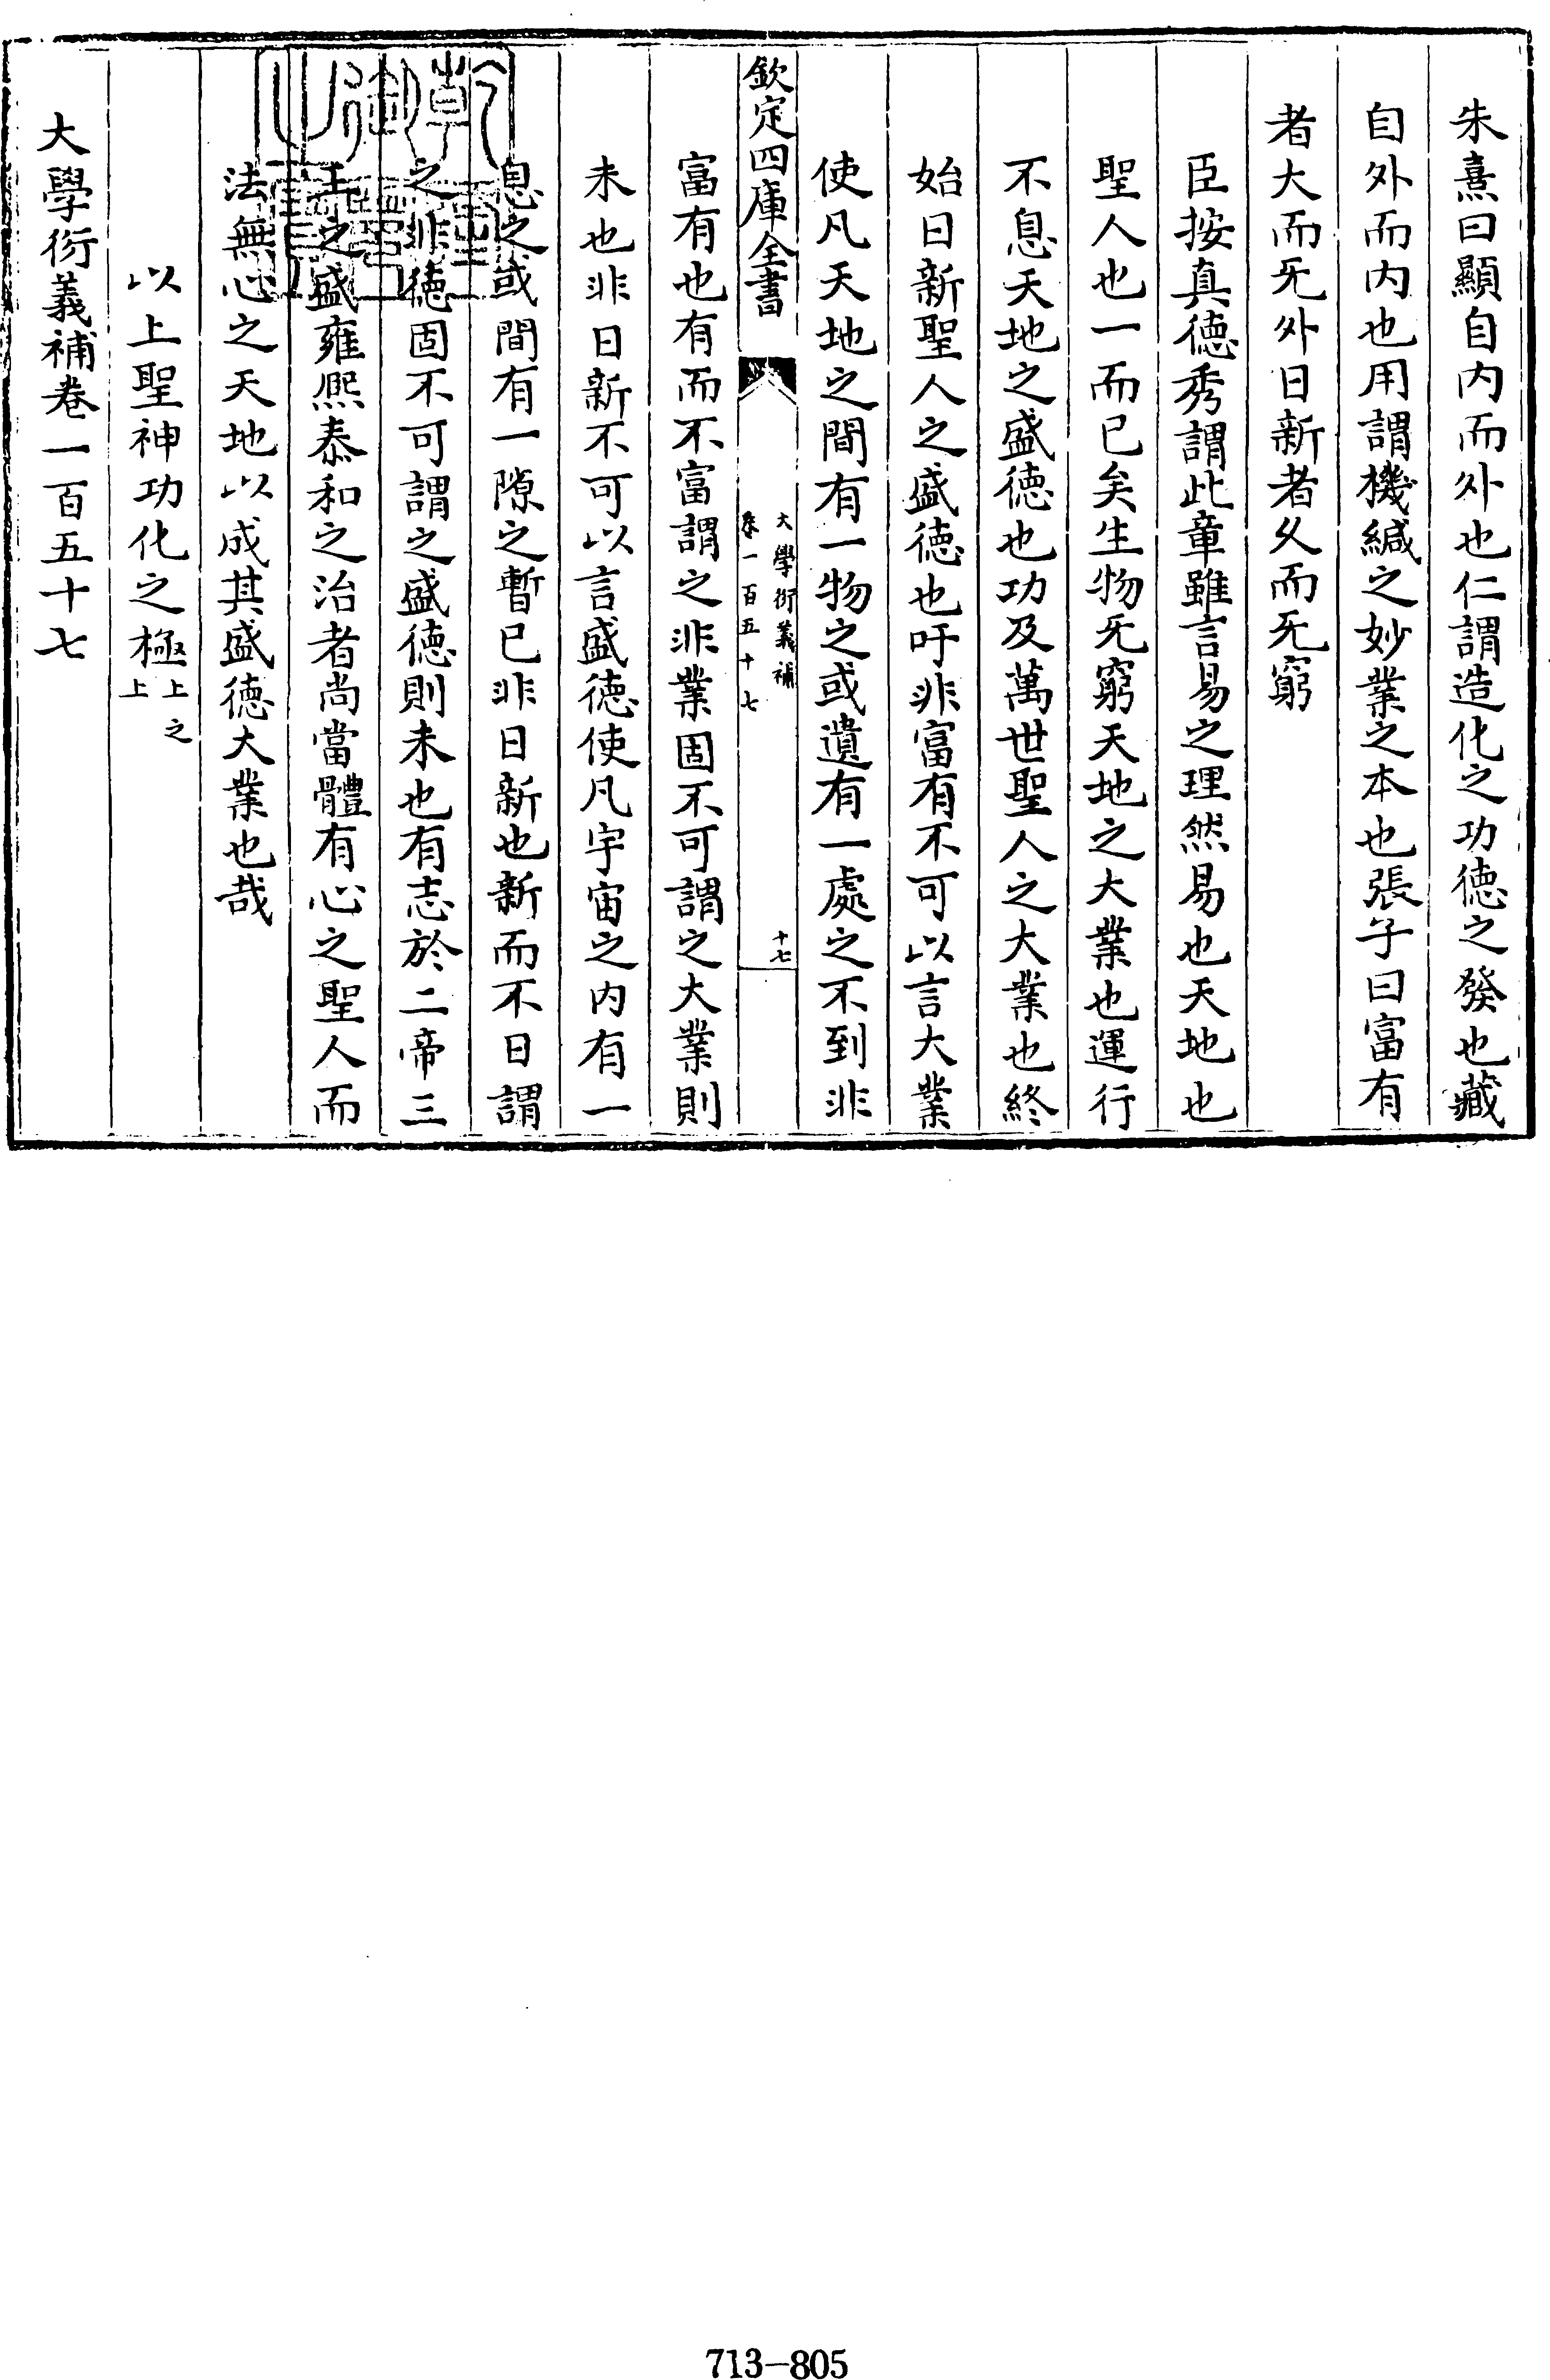 朱熹曰顯自内而外也仁謂造化之功德之發也藏
自外而内也用謂機緘之妙業之本也張子曰富有
者大而无外日新者乆而无窮
臣按真德秀謂此章雖言易之理然易也天地也
聖人也一而已矣生物无窮天地之大業也運行
不息天地之盛德也功及萬世聖人之大業也終
始日新聖人之盛德也吁非富有不可以言大業
使凡天地之間有一物之或遺有一處之不到非
欽定四庫全書
大學衍義補
卷一百五十七
十七
富有也有而不富謂之非業固不可謂之大業則
未也非日新不可以言盛德使凡宇宙之内有一
息之或間有一隙之暫已非日新也新而不日謂
之非德固不可謂之盛德則未也有志於二帝三
王之盛雍熈泰和之治者尚當體有心之聖人而
法無心之天地以成其盛德大業也哉
以上聖神功化之極上之
上
大學衍義補卷一百五十七
713-805